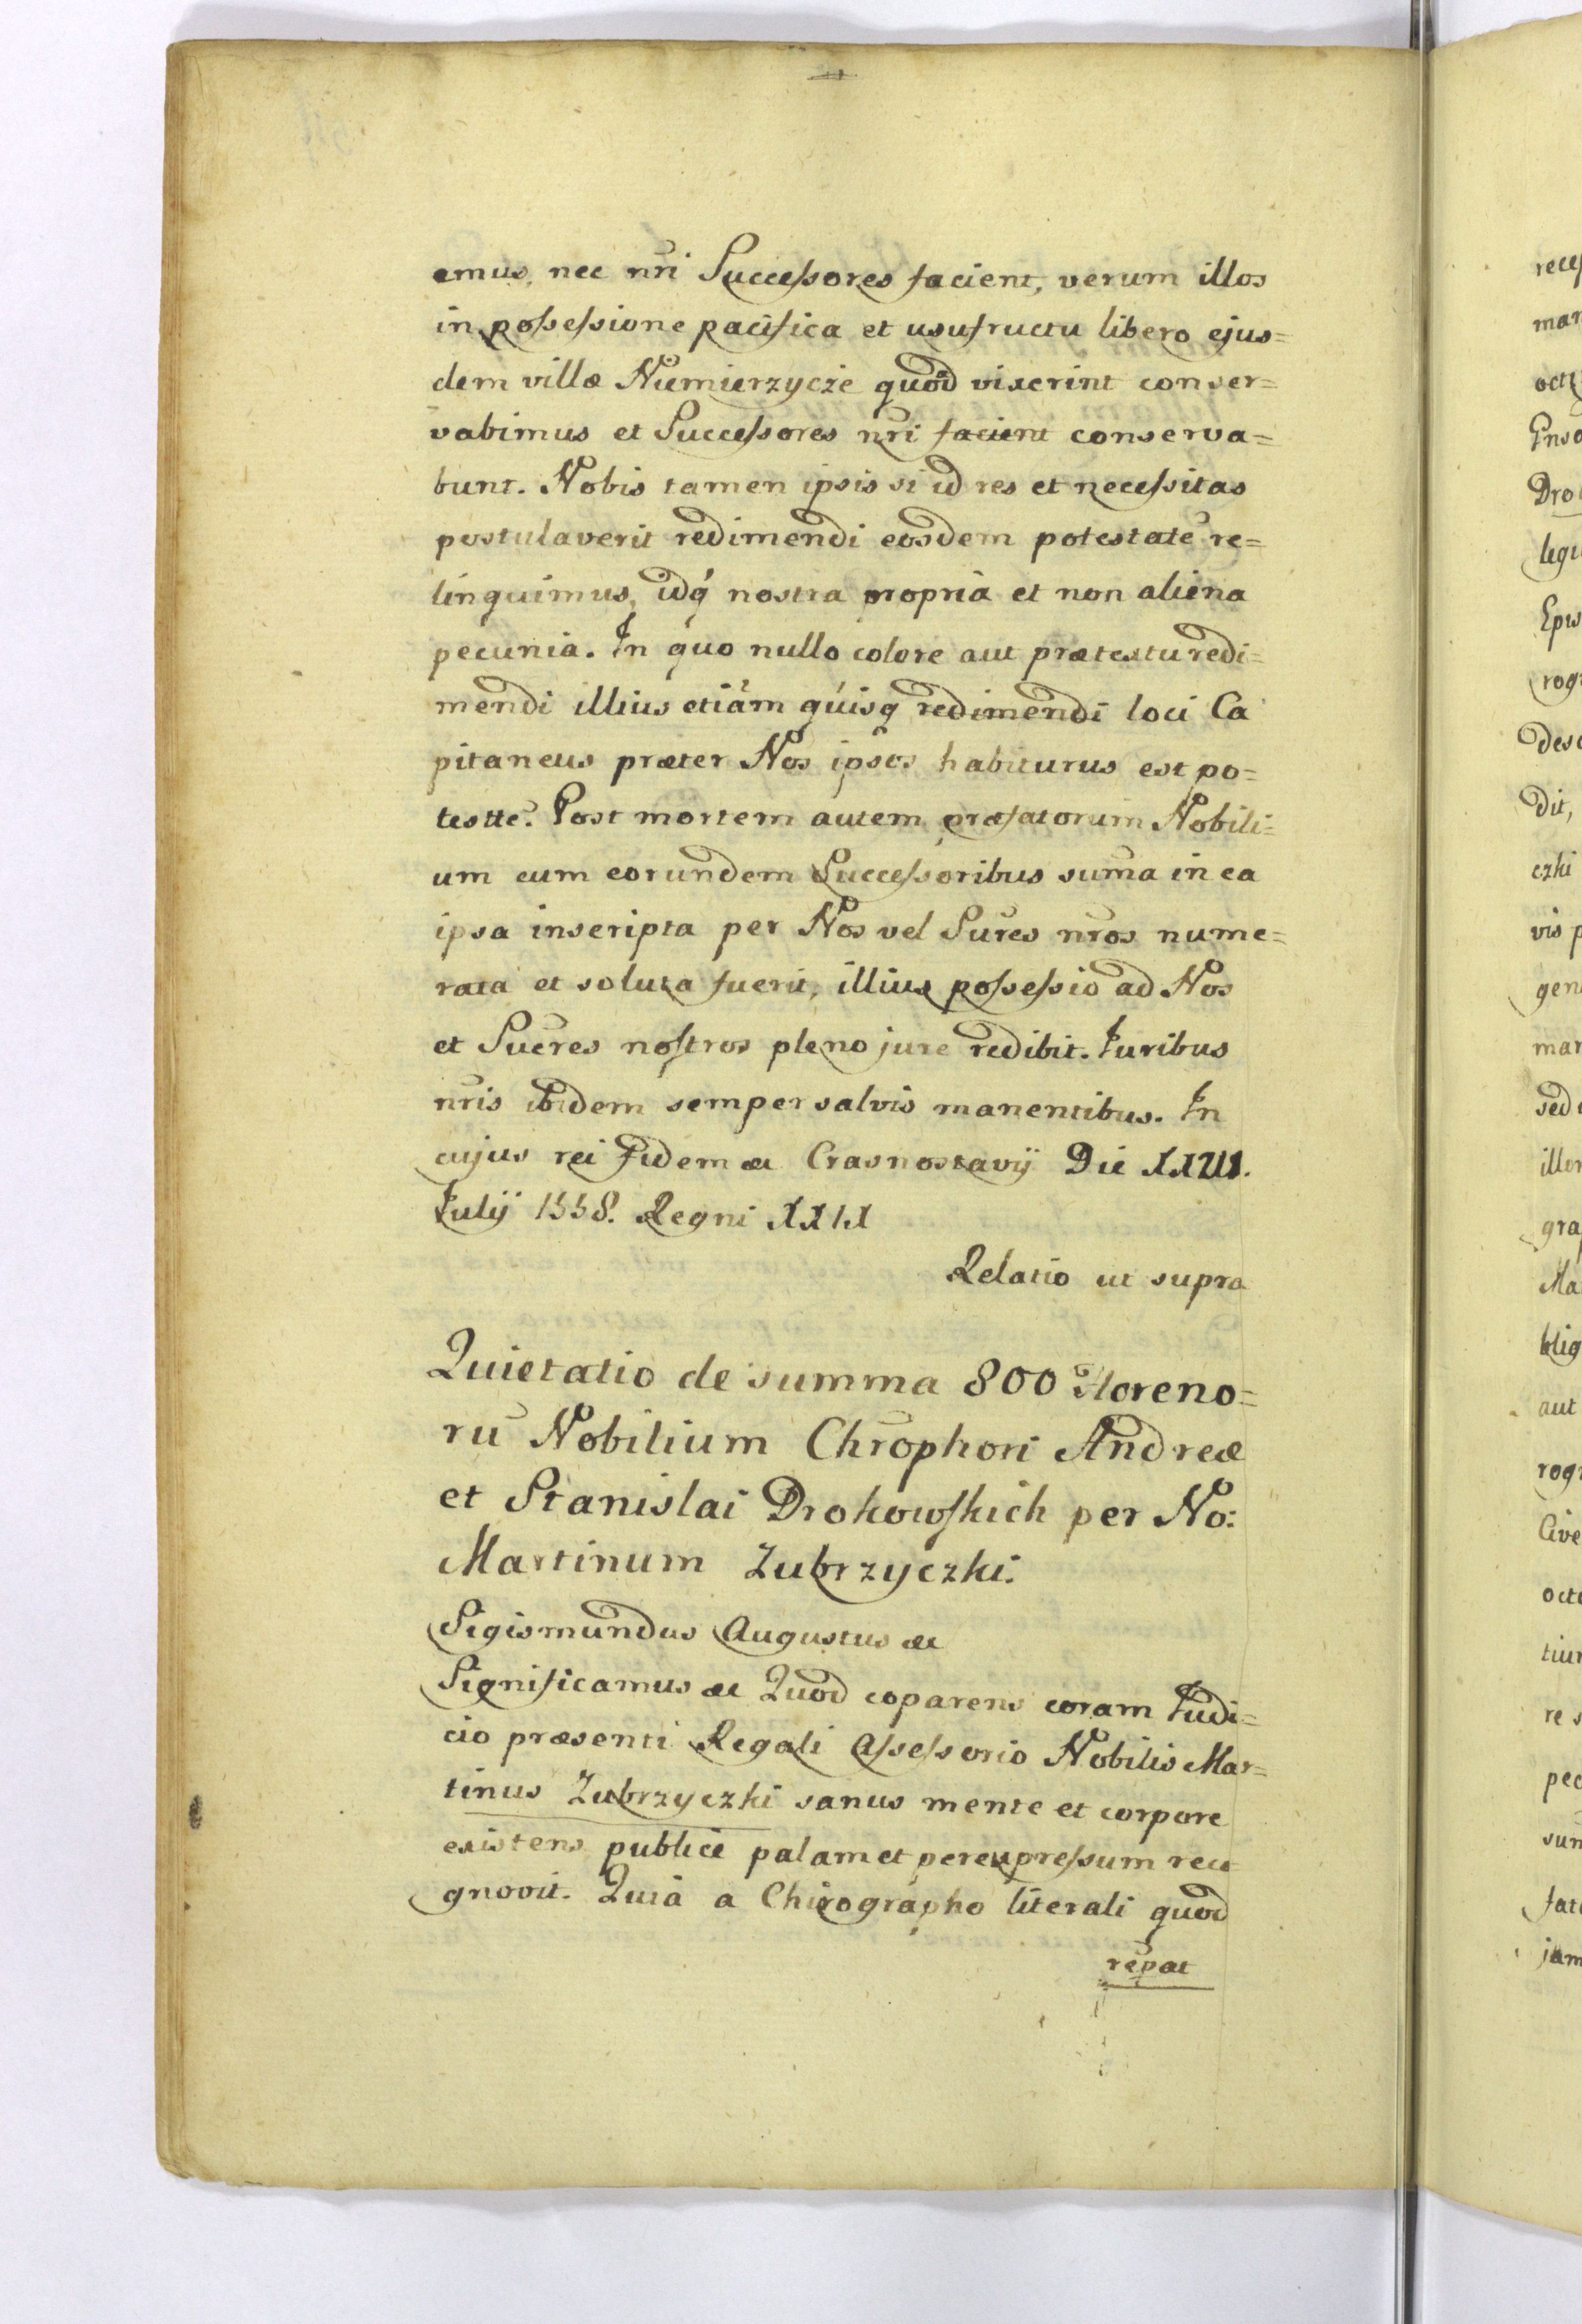 emus, nec nr̃i Succeſsores facient, verum illos
in poſseſsione pacifica et usufructu libero ejus=
dem villæ Niemierzycze quoãd vixerint conser=
vabimus et Succeſsores nr̃i facient conserva=
bunt. Nobis tamen ipsis si id res et neceſsitas
postulaverit redimendi eosdem potestatẽ re=
linquimus, idq́ nostra propria et non aliena
pecunia. In quo nullo colore aut prætextu redi=
mendi illius etiam quisq redimendi loci Ca
pitaneus præter Nos ipsos habiturus est po=
testtẽ. Post mortem autem præfatorum Nobili=
um cum eorundem Succeſsoribus sum̃a in ea
ipsa inscripta per Nos vel Suc̃res nr̃os nume=
rata et soluta fuerit, illius poſseſsio ad Nos
et Suc̃res noſtros pleno jure redibit. Juribus
nr̃is ibidem semper salvis manentibus. In
cujus rei fidem &c Crasnostavij Die
Julij 1558. Regni XXIX
Relatio ut supra
Quietatio de summa 800 Floreno=
rũ Nobilium Chr̃ophori Andreæ
et Stanislai Drohowſkich per No:
Martinum Zubrzyczki.
Sigismundus Augustus &c
Significamus &c Quod coparens coram Judi=
cio præsenti Regali Aſseſsorio Nobilis Mar=
tinus Zubrzyczki sanus mente et corpore
existens publice palam et per expreſsum reco
gnovit. Quia a Chirographo literali quod
rece
mar
Dro
rogr
Dit,
czki
vis p
gen
mar
sed
gra
Ma
aut
rogr
Cive
tiur
re s
pec
sum
jam